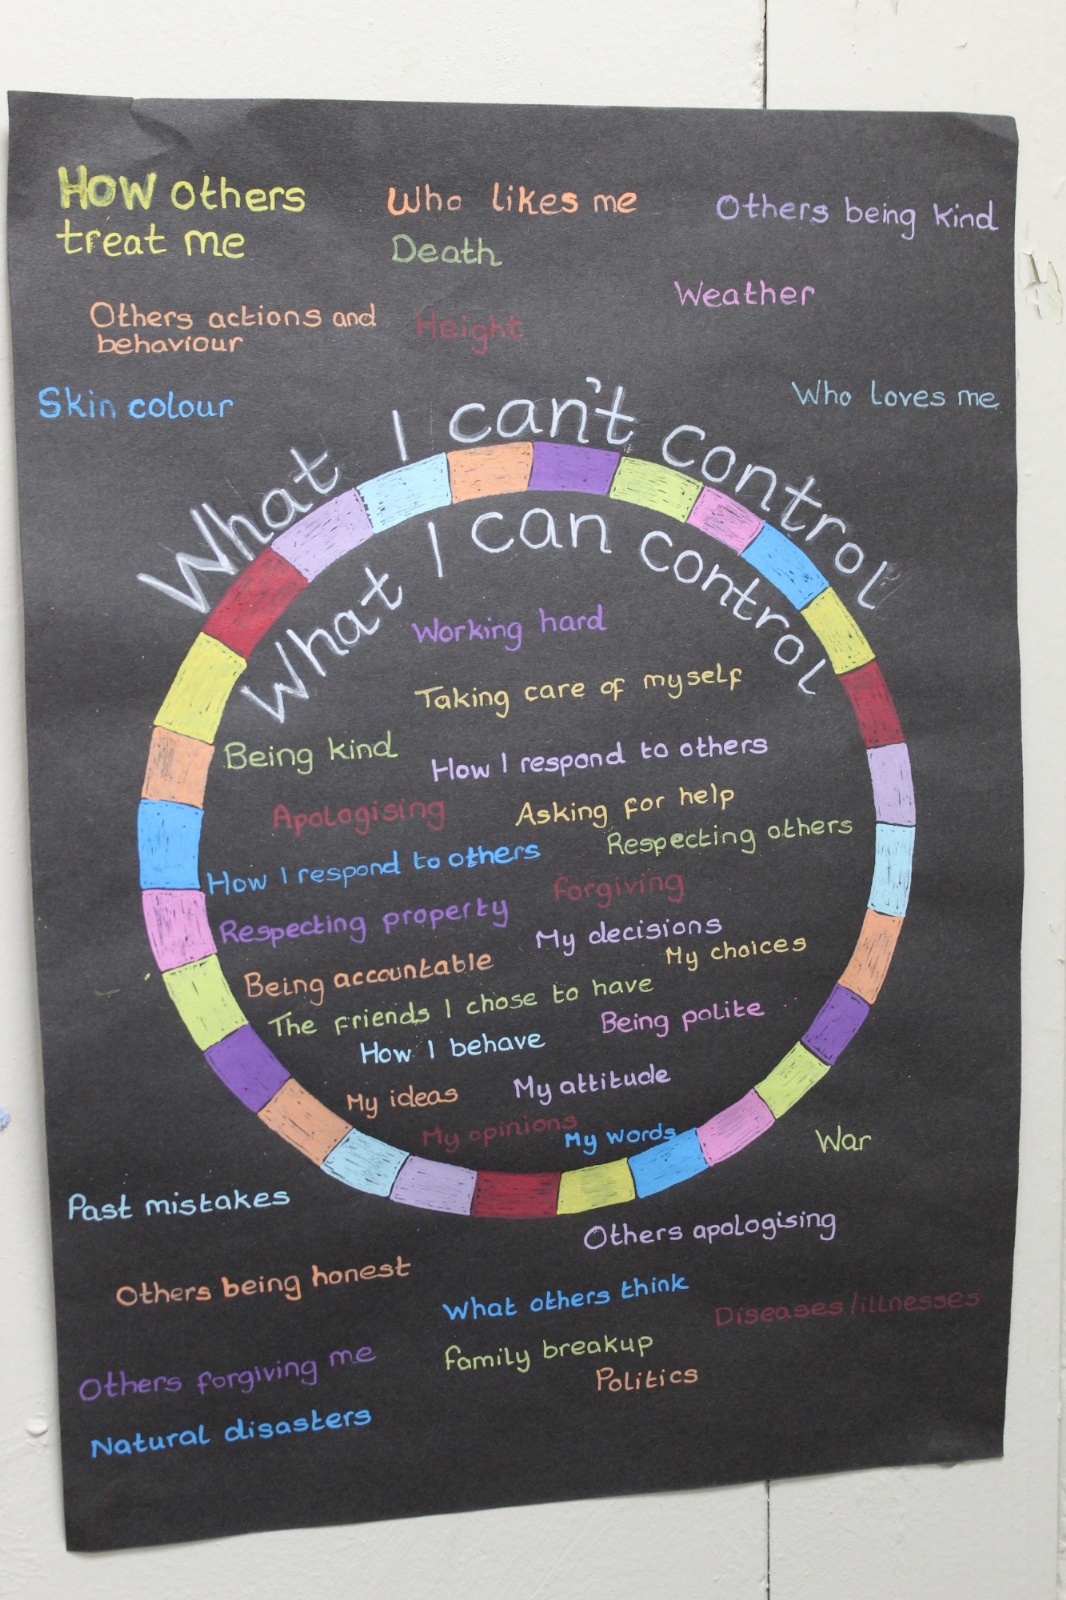 How others
treat me
Who likes me
Others being kind
Death
Weather
Others actions and
behaviour
Height
Skin colour
Who loves me
What I can't control
What I can control
Working hard
Taking care of myself
Being kind
How I respond to others
Apologising
Asking for help
Respecting others
How I respond to others
forgiving
Respecting property
My decisions
My choices
Being accountable
The friends I chose to have
Being polite
How I behave
My attitude
My ideas
My opinions
My words
War
Past mistakes
Others apologising
Others being honest
What others think
Diseases/illnesses
Others forgiving me
family breakup
Politics
Natural disasters